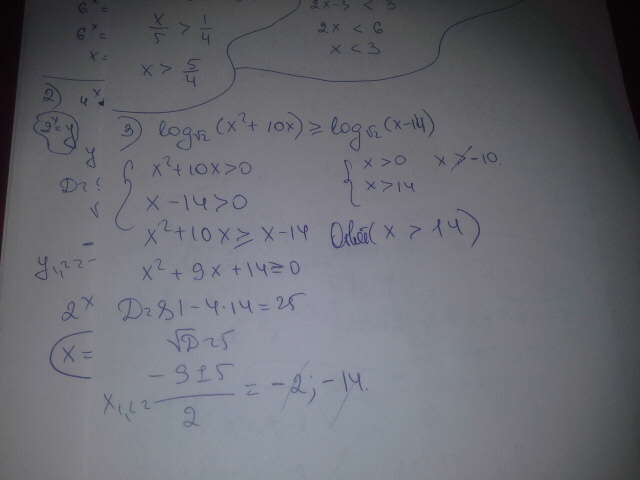 6ˣ=
6ˣ=
x=
x/5 > 1/4
x > 5/4
2x-3 < 3
2x < 6
x < 3
2) 4ˣ
y
D=
y₁,₂=-
2ˣ
x=
3) log√2 (x²+10x) ≥ log√2 (x-14)
x²+10x>0
x-14>0
x²+10x ≥ x-14
x>0 x>-10.
x>14
Ответ(x > 14)
x²+9x+14≥0
D=81-4·14=25
√D=5
x₁,₂= (-9±5)/2 = -2; -14.